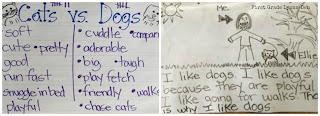 Cats vs. Dogs
soft
cute • pretty
good
run fast
snuggle in bed
playful
• cuddle • compan
• adorable
• big • tough
• play fetch
• friendly • walks
• chase cats
First Grade
Me
Ellie
I like dogs. I like dogs
because they are playful.
I like going for walks. Tha
is why I like dogs.